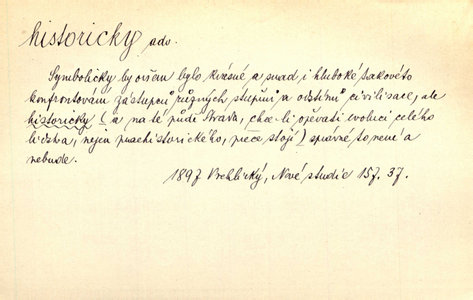 historicky adv.
Symbolicky by ovšem bylo krásné a snad i hluboké takovéto
konfrontování zástupců různých stupňů a odstínů civilisace, ale
historicky (a na té půdě Arava, chce-li opěvati evoluci celého
lidstva, nejen praehistorického, přece stojí) správné to není a
nebude.
1897 Vrchlický, Nové studie 157. 37.